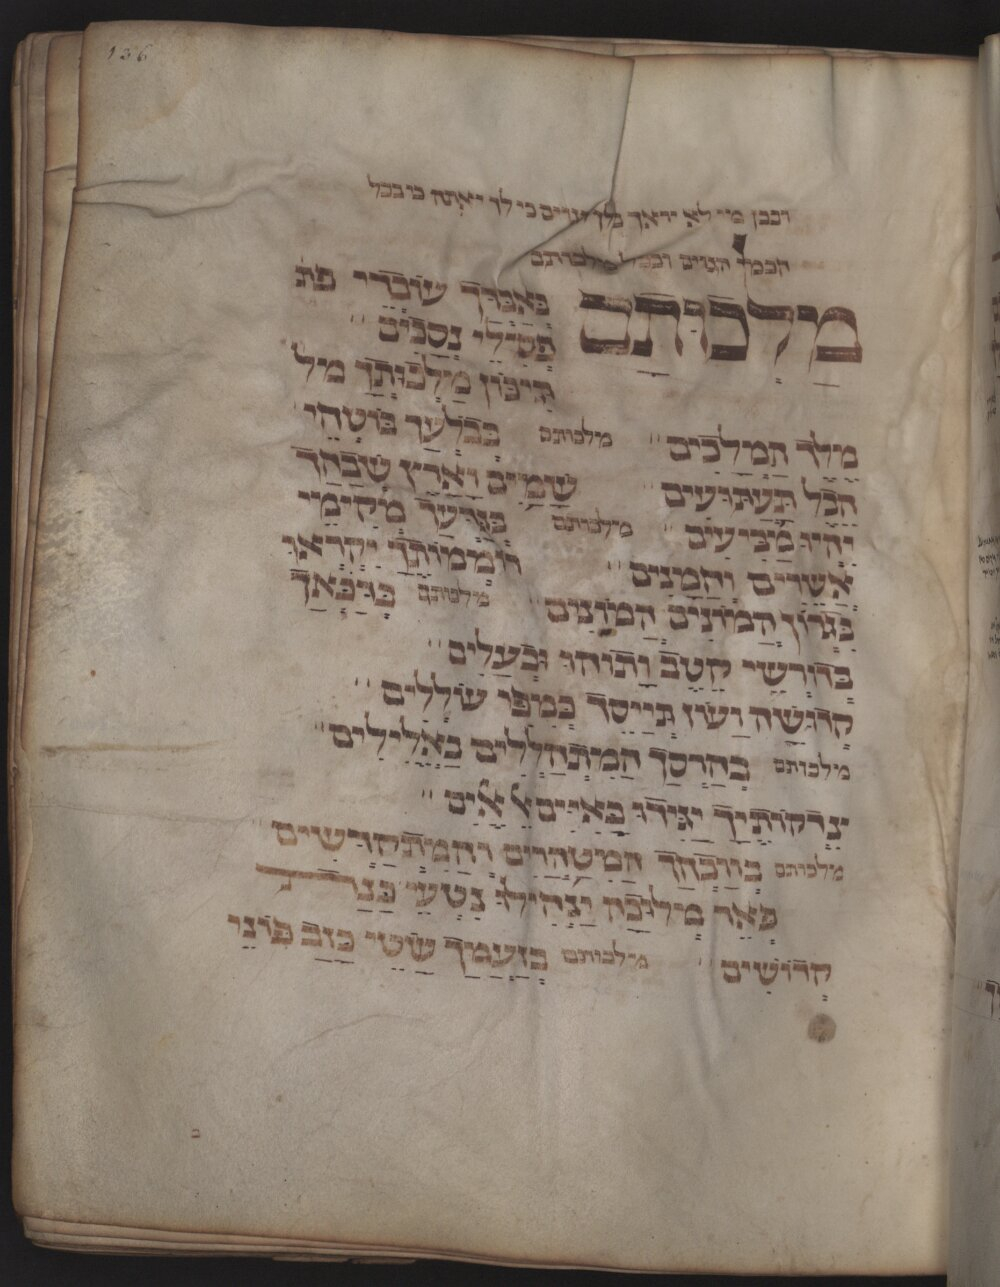 136
ובכן מי לא יראך מלך הגוים כי לך יאתה כי בכל
חכמי הגוים ובכל מלכותם
מַלְכוּתָם בְּאַבֶּדְךָ עוֹבְדֵי פת
פְּסִילֵי נְסָכִים
תִּיכּוֹן מַלְכוּתָךְ מל
מֶלֶךְ הַמְּלָכִים מלכותם בְּבַלְּעָךְ בּוֹטְחֵי
הֶבֶל תַּעְתּוּעִים שָׁמַיִם וָאָרֶץ שִׁבְחָךְ
יִהְיוּ מַבִּיעִים מלכותם בְּגַדְּעָךְ מְקִימֵי
אֲשֵׁרִים וְחַמָּנִים רוֹמְמוֹתֶךָ יִקְרָאוּ
בְּגָרוֹן הֲמוֹנִים הֲמוֹנִים מלכותם
בְּדוֹרְשֵׁי קֶטֶב וָתוֹהוּ וּבְעָלִים
קְדוּשָּׁה וַעֹז תְּיַיסֵּד בְּמִפִּי עוֹלָלִים
מלכותם בְּהָרְסָךְ הַמִּתְהַלְלִים בָּאֱלִילִים
צִדְקוֹתֶיךָ יַגִּידוּ בָּאִיִּים
מלכותם בְּוַכְּחָךְ הַמִּטַּהֲרִים וְהַמִּתְקַדְּשִׁים
פְּאֵר מְלוּכָה יַצְהִילוּ נִטְעֵי
קְדוֹשִׁים מלכותם בְּזָעְמָךְ שָׂטֵי כָזָב פּוֹנֵי